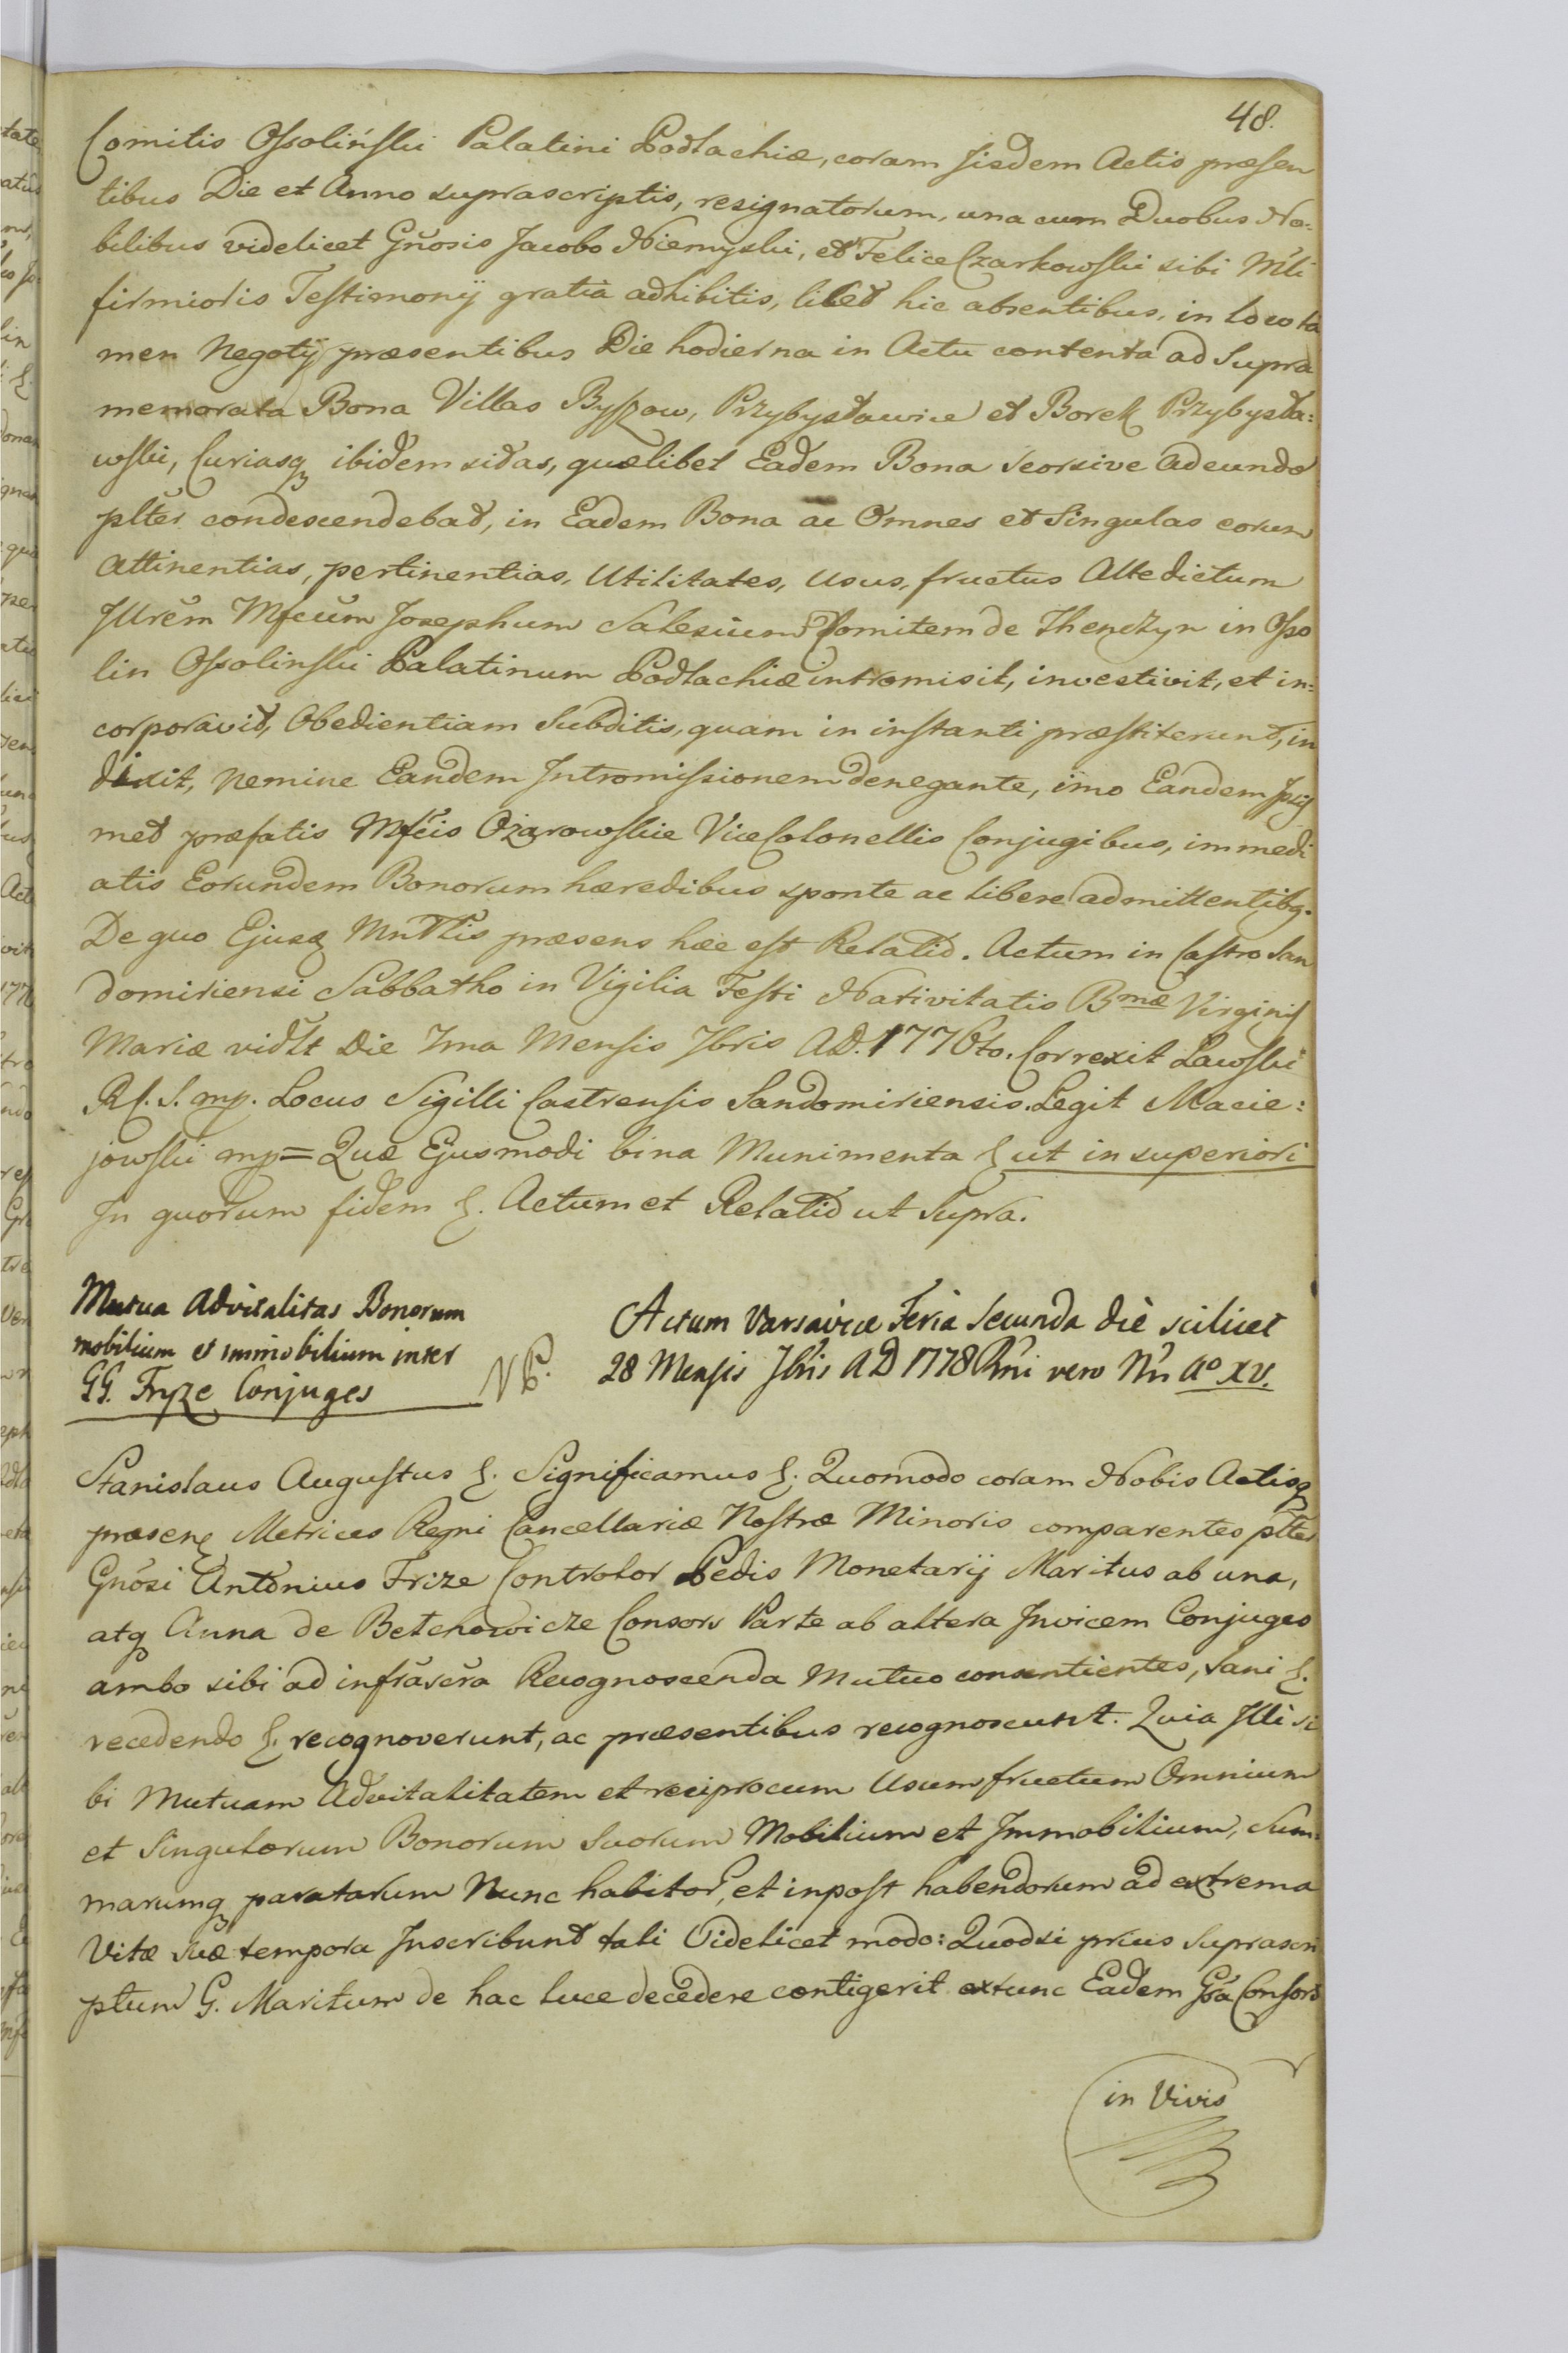 48.
Comitis Ossoliński Palatini Podlachiæ, coram iisdem Actis præsen
tibus Die et Anno suprascriptis, resignatorum, una cum Duobus No=
bilibus videlicet Gñosis Jacobo Niemyski, et Felice Czarkowski sibi M̃li
firmioris Testimonij gratia adhibitis, licet hic absentibus, in loco ta
men Negotij præsentibus Die hodierna in Actu contenta ad Supra
memorata Bona Villas Byszow, Przybysławice et Borek Przybysła=
wski, Curiasq ibidem sitas, quælibet Eadem Bona seorsive adeundo
pltẽr condescendebat, in Eadem Bona ac Omnes et Singulas eorum
Attinentias, pertinentias, Utilitates, Usus, fructus Altedictum
Jllrẽm Mfcũm Josephum Salesium Comitem de Thenczyn in Osso
lin Ossolinski Palatinum Podlachiæ intromisit, investivit, et in=
corporavit, Obedientiam Subditis, quam in instanti præstiterunt, in
dixit, Nemine Eandem Intromissionem denegante, imo Eandem Ipsis
met præfatis Mfcis Ożarowskie ViceColonellis Conjugibus, immedi
atis Eorundem Bonorum hæredibus sponte ac libere admittentibq.
De quo Ejusq Mnrlis præsens hæc est Relatio. Actum in Castro San
domiriensi Sabbatho in Vigilia Festi Nativitatis Bmæ Virginis
Mariæ vidlt Die 7ma Mensis 7bris A.D. 1776to. Correxit Lawski
R C. S. mp. Locus Sigilli Castrensis Sandomiriensis. Legit Macie=
jowski mp = Quæ Ejusmodi bina Munimenta & ut in superiori
In quorum fidem &. Actum et Relatio ut Supra.
Mutua Advitalitas Bonorum
mobilium et immobilium inter
GG. Fryze Conjuges
Actum Varsaviæ Feria Secunda die scilicet
28 Mensis 7bris AD 1778 Rñi vero Nri Ao XV.
Stanislaus Augustus &. Significamus &. Quomodo coram Nobis Actisq
præsenq Metrices Regni Cancellariæ Nostræ Minoris comparentes pltẽr
Gnõsi Antonius Frize Controlor Pedis Monetarij Maritus ab una,
atq Anna de Betchowicze Consors Parte ab altera Invicem Conjuges
ambo sibi ad infrascra Recognoscenda Mutuo consentientes, Sani &.
recedendo &. recognoverunt, ac præsentibus recognoscunt. Quia Illi si
bi Mutuam Advitalitatem et reciprocum Usumfructum Omnium
et Singulorum Bonorum Suorum Mobilium et Immobilium, Sum=
marumq paratarum Nunc habitor, et inpost habendorum ad extrema
Vitæ suæ tempora Inscribunt tali Videlicet modo: Quodsi prius Suprascri
ptum G. Maritum de hac luce decedere contigerit extunc Eadem Gsa Consors
in Vivis